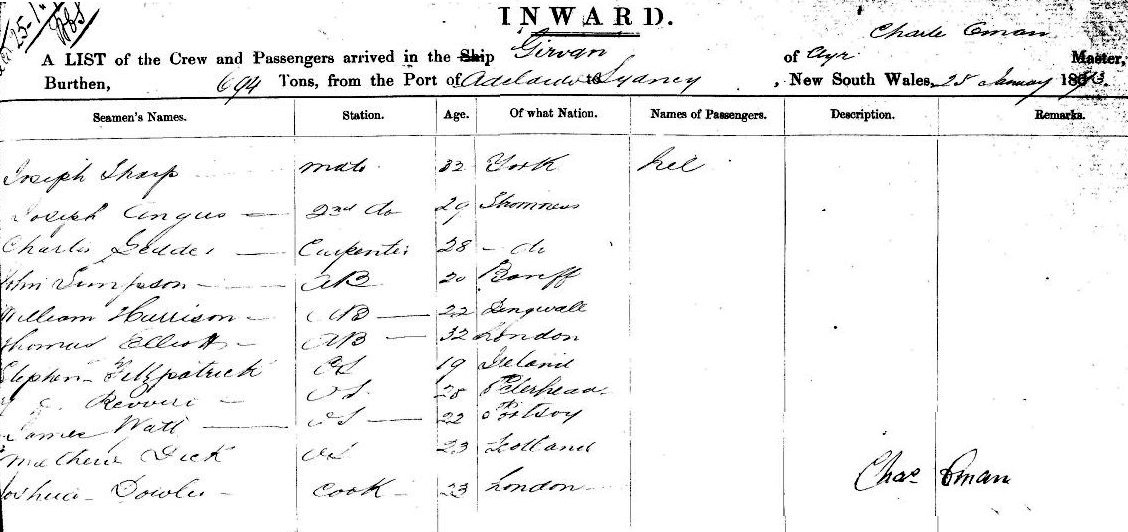 25-1
INWARD.
Charles Oman
A LIST of the Crew and Passengers arrived in the Ship Girvan of Ayr Master,
Burthen, 694 Tons, from the Port of Adelaide to Sydney , New South Wales, 25 January 18
Seamen's Names. Station. Age. Of what Nation. Names of Passengers. Description. Remarks.
Joseph Sharp mate 32 York Nil
Joseph Angus 2nd do 29 Stromness
Charles Geddes Carpenter 28 - do
John Simpson AB 20 Banff
William Harrison AB 22 Dingwall
Thomas Elliott AB 32 London
Stephen Fitzpatrick OS 19 Ireland
OS 28 Peterhead
James Watt OS 22 Portsoy
Mathew Dick OS 23 Scotland
Joshua Cook 23 London
Chas Oman